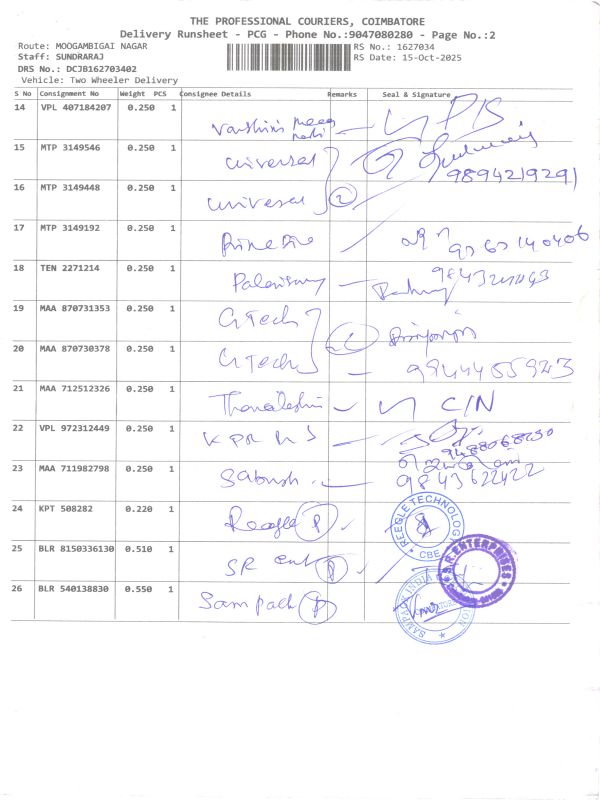 THE PROFESSIONAL COURIERS, COIMBATORE
Delivery Runsheet - PCG - Phone No.:9047080280 - Page No.:2
Route: MOOGAMBIGAI NAGAR
Staff: SUNDRARAJ
DRS No.: DCJB162703402
Vehicle: Two Wheeler Delivery
RS No.: 1627034
RS Date: 15-Oct-2025
S No Consignment No Weight PCS Consignee Details Remarks Seal & Signature
14 VPL 407184207 0.250 1 Varshini P/S
15 MTP 3149546 0.250 1 universal 9894219291
16 MTP 3149448 0.250 1 universal 2
17 MTP 3149192 0.250 1
18 TEN 2271214 0.250 1 Palanisamy
19 MAA 870731353 0.250 1 G Tech
20 MAA 870730378 0.250 1 G Tech
21 MAA 712512326 0.250 1 C/N
22 VPL 972312449 0.250 1 K P R 9488068230
23 MAA 711982798 0.250 1 Sabush 9843622422
24 KPT 508282 0.220 1 Reegle P REEGLE TECHNOLOG CBE
25 BLR 8150336130 0.510 1 SR ent P S.R. ENTERPRISES
26 BLR 540138830 0.550 1 Sampack P SAMPACK INDIA